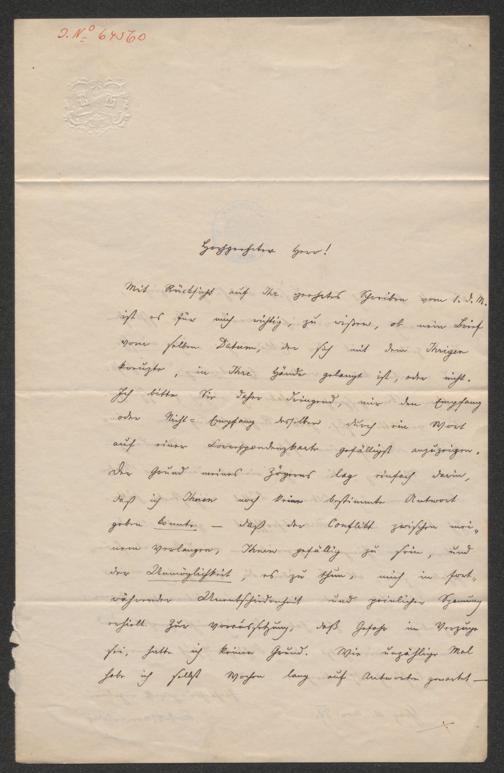 I. No 64560
Hochgeehrter Herr!
Mit Rücksicht auf Ihr geehrtes Schreiben vom 1. d. M.
ist es für mich wichtig, zu wissen, ob mein Brief
vom selben Datum, der sich mit dem Ihrigen
kreuzte, in Ihre Hände gelangt ist, oder nicht.
Ich bitte Sie daher dringend, mir den Empfang
oder Nicht-Empfang desselben durch ein Wort
auf einer Correspondenzkarte gefälligst anzuzeigen.
Der Grund meines Zögerns lag einfach darin,
daß ich Ihnen noch keine bestimmte Antwort
geben konnte — daß der Conflikt zwischen mei-
nem Verlangen, Ihnen gefällig zu sein, und
der Unmöglichkeit, es zu thun, mich in fort-
währender Unentschiedenheit und peinlicher Spannung
erhielt. Zur Voraussetzung, daß Gefahr im Verzuge
sei, hatte ich keinen Grund. Wie unzählige Mal
habe ich selbst Wochen lang auf Antworten gewartet —